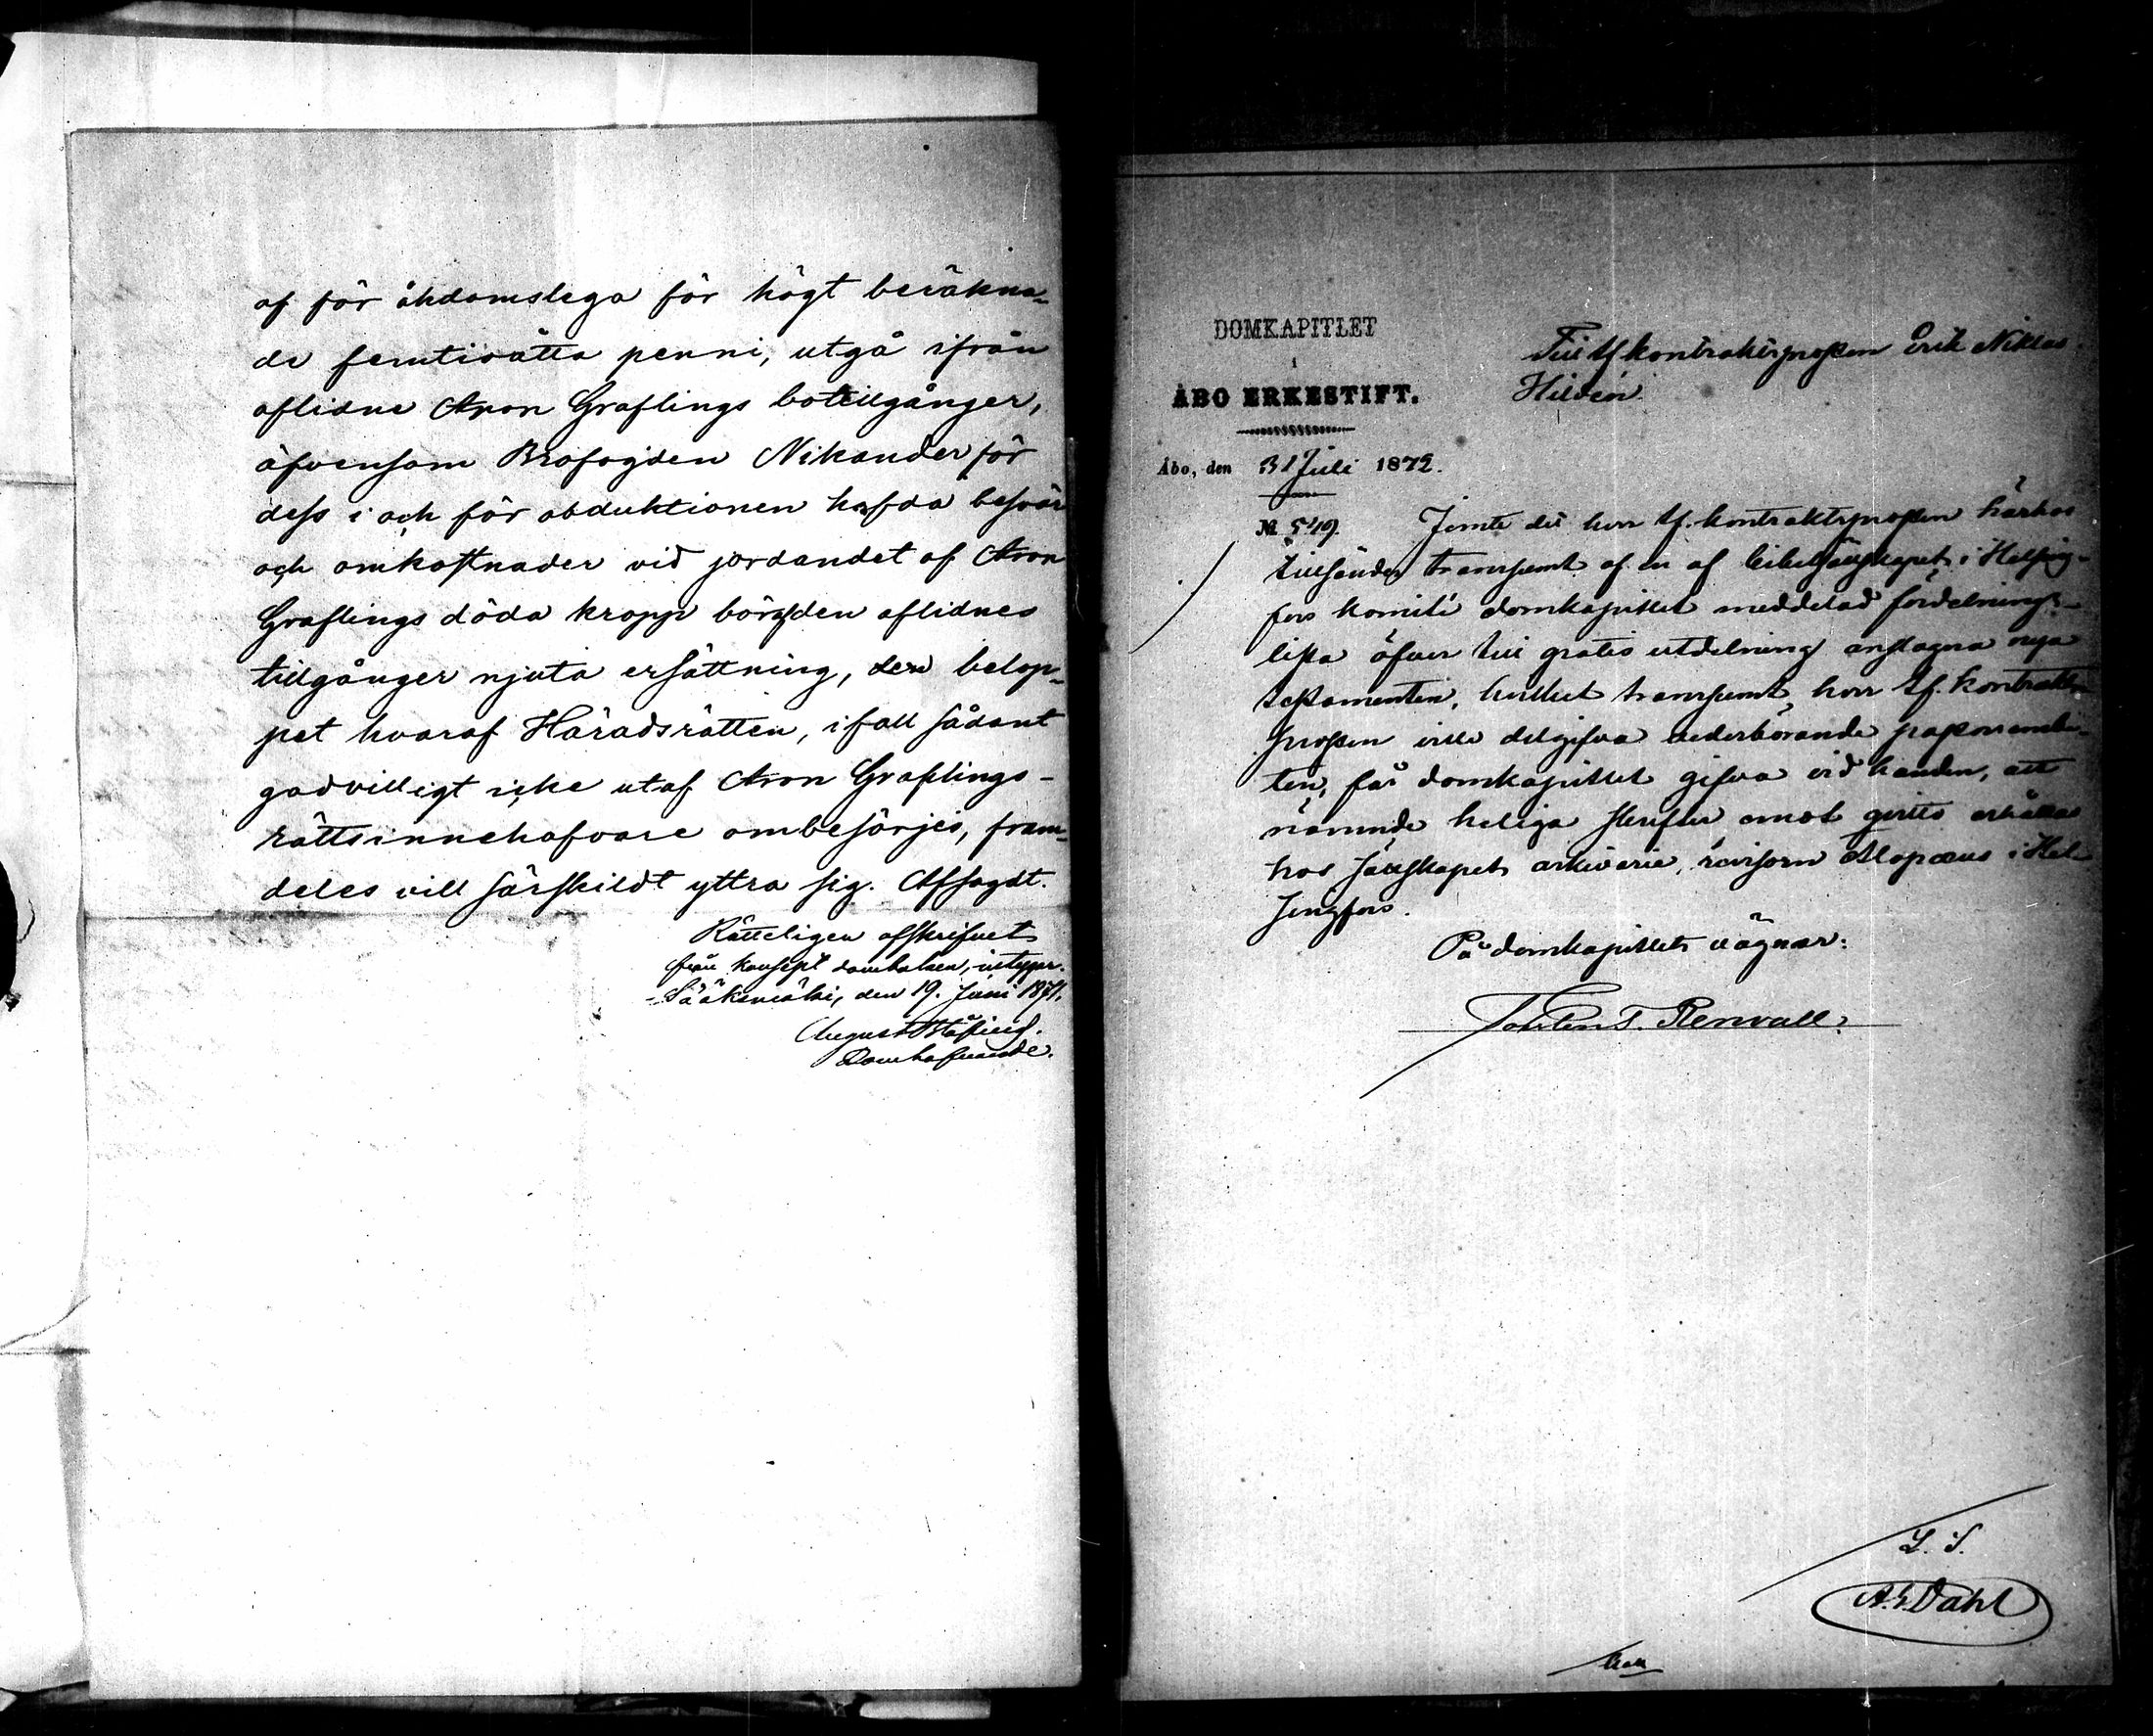 af för åkdomslega för högt beräkna-
de femtioåtta penni, utgå ifrån
aflidne Aron Graflings botillgånger,
äfvensom Brofogden Nikander för
dess i och för obduktionen hafda besvär
och omkostnader vid jordandet af Aron
Graflings döda kropp bör af den aflidnes
tillgånger njuta ersättning, den belop-
pet hvaraf Häradsrätten, ifall sådant
godvilligt icke utaf Aron Graflings-
rättsinnehafvare ombesörjes, fram-
deles vill särskildt yttra sig. Afsagdt.
Rätteligen afskrifvet
från konsept domboken, intygar.
Sääksmäki, den 19. Juni 1871.
August
Domhafvande.
DOMKAPITLET
i
ÅBO ERKESTIFT.
Åbo, den 31 Juli 1872.
№ 549.
Till tf kontraktsprosten Erik Niklas
Hildén.
Jemte det herr tf. kontraktsprosten härhos
tillsändes transsumt af en af bibelsällskapets i Helsing-
fors komité domkapitlet meddelad fördelnings-
lista öfver till gratis utdelning anslagna nya
testamenten, hvilket transsumt herr tf. kontrakts-
prosten ville delgifva vederbörande pastorsembe-
ten, får domkapitlet gifva vid handen, att
nämnde heliga skrifter emot qvitto erhållas
hos sällskapets arkivarie, revisorn Alopæus i Hel-
singfors.
På domkapitlets vägnar:
Torsten T. Renvall.
L. S.
A. E. Dahl